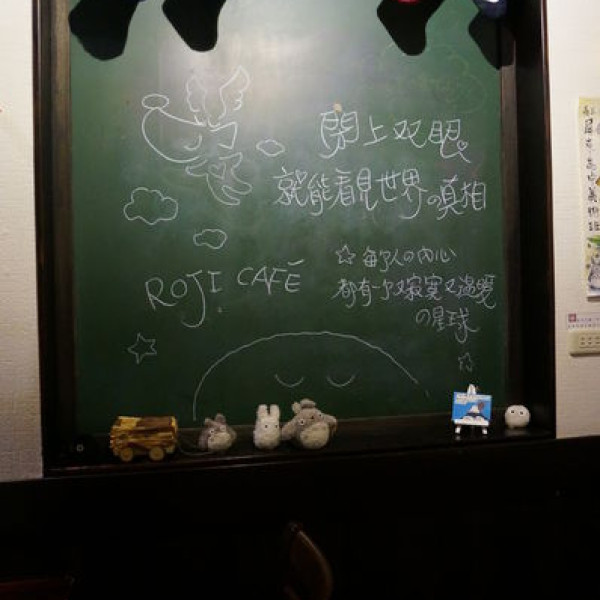 閉上双眼、
就能看見世界の真相
ROJI CAFÉ
☆ 每个人の內心
都有一个又寂寞又溫暖
の星球